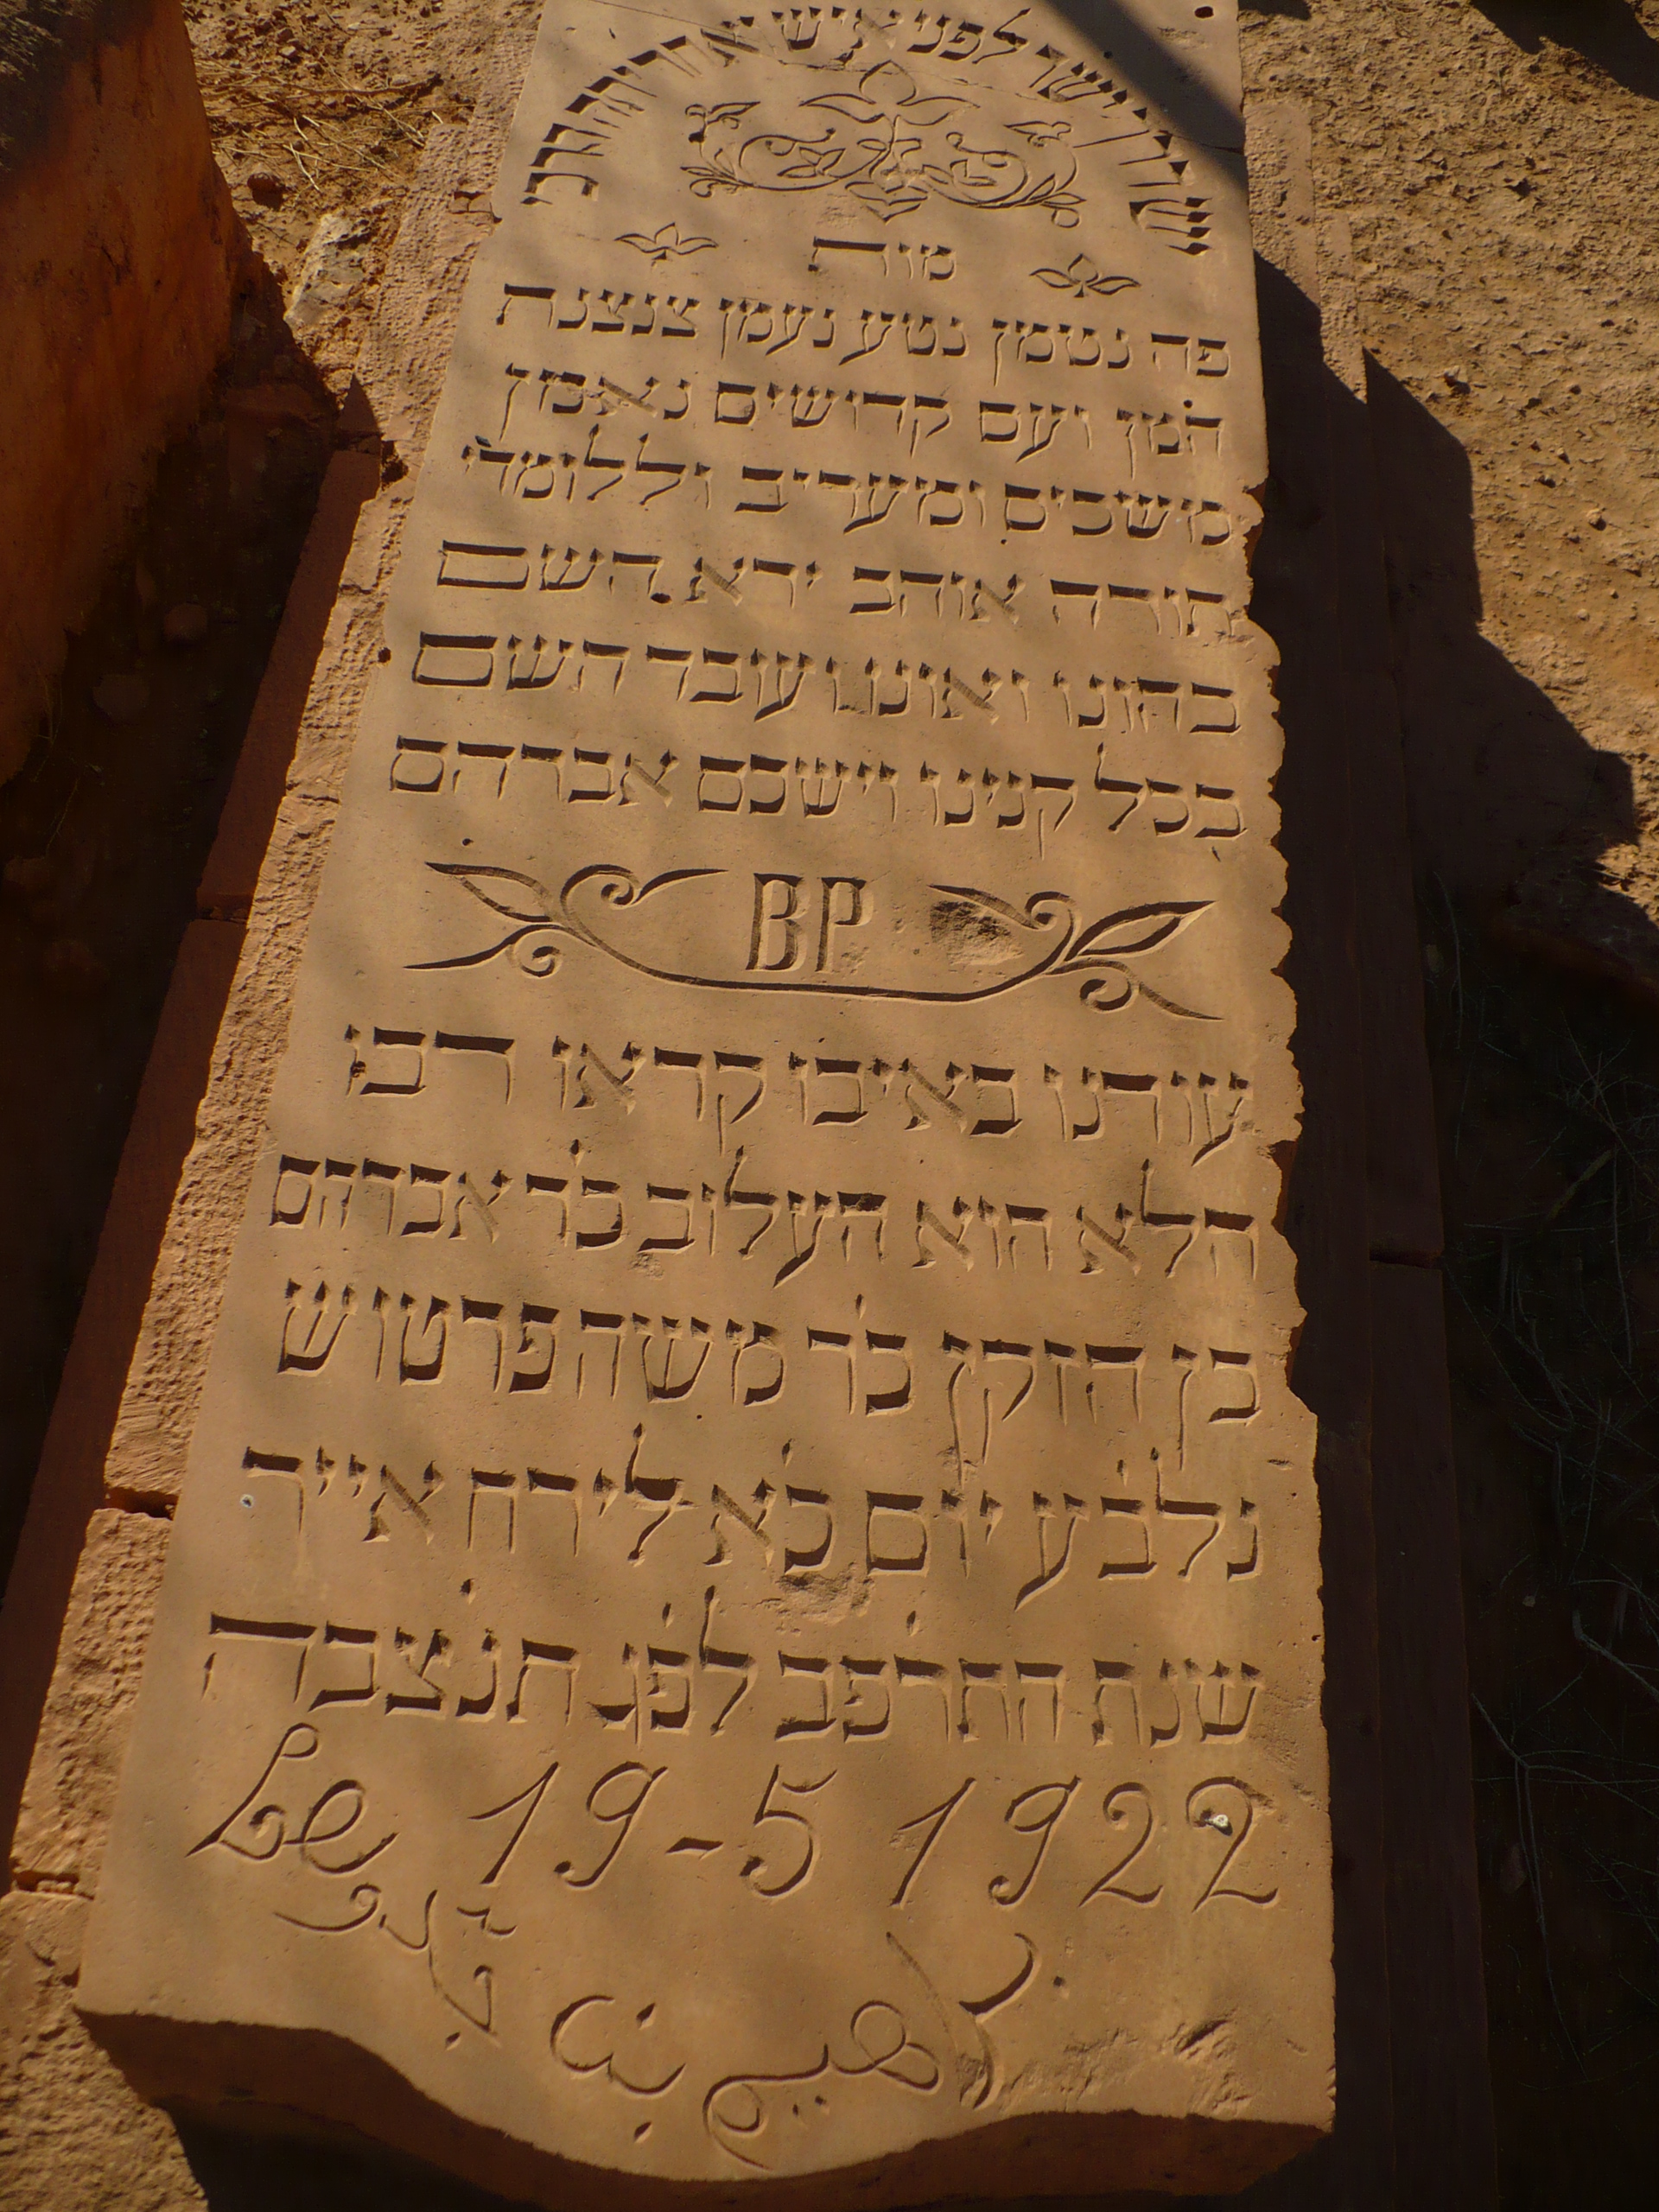 לפני איש
מות
פה נטימן נטע נעמן צנצנת
המן ועם קדושים נאמן
משכים ומעריב וללומדי
תורה אוהב ירא השם
בהונו ואונו עובד השם
בכל קנינו וישכם אברהם
BP
עודנו באיבו קראו רבו
הלא הוא העלוב כ׳ר אברהם
בן הזקן כ׳ר משה פרטוש
נלב׳ע יום כ׳א לירח אייר
שנת התרפ׳ב לפ׳ג ת׳נ׳צ׳ב׳ה
19-5 1922